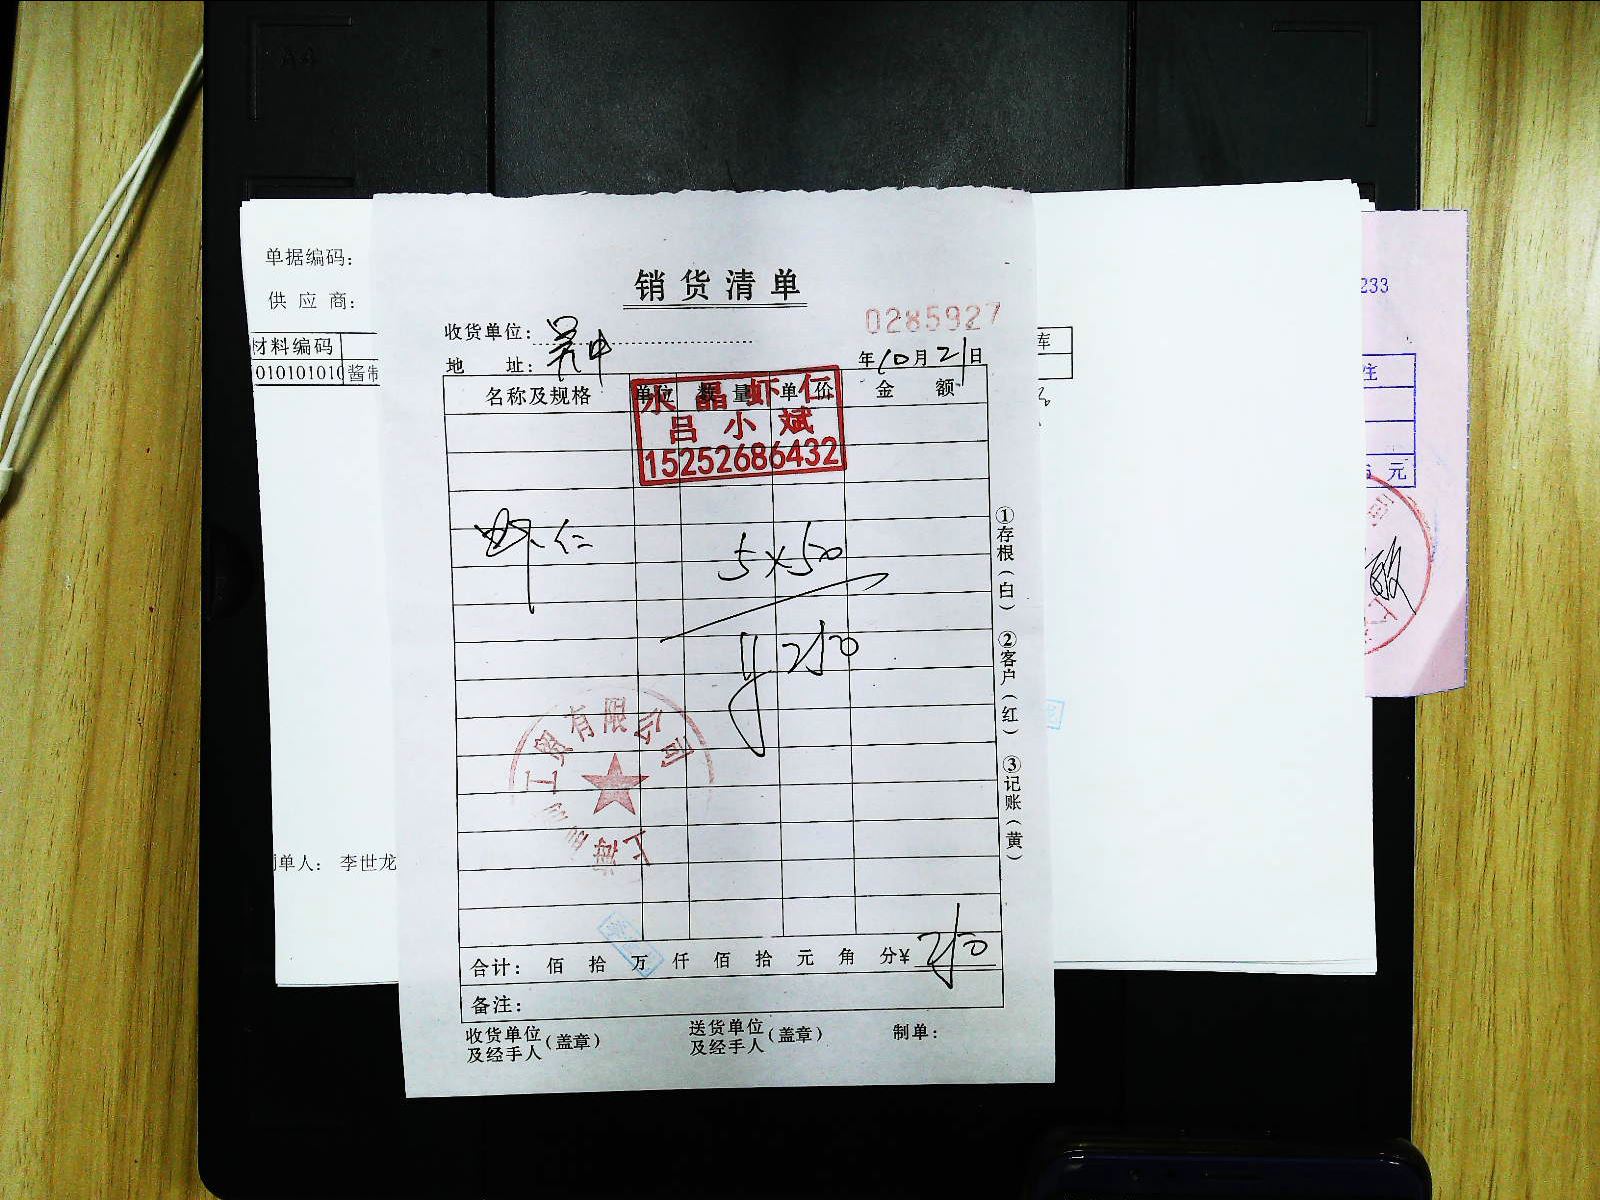 A4
单据编码：
供 应 商：
材料编码
010101010 酱制
制单人： 李世龙
销货清单
0285927
收货单位：
地 址：
年10月21日
名称及规格 单位 数量 单价 金 额
水晶虾仁
吕小斌
15252686432
虾仁 5×50
¥250
工贸有限公司
上海
合计： 佰 拾 万 仟 佰 拾 元 角 分¥ 250
备注：
收货单位及经手人（盖章） 送货单位及经手人（盖章） 制单：
①存根（白） ②客户（红） ③记账（黄）
库
233
注
元
司